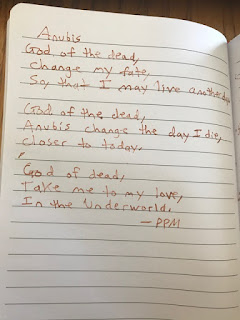 Anubis
God of the dead,
Change my fate,
So, that I may live another day
God of the dead,
Anubis change the day I die,
closer to today.
God of dead,
Take me to my love,
In the Underworld.
— PPM